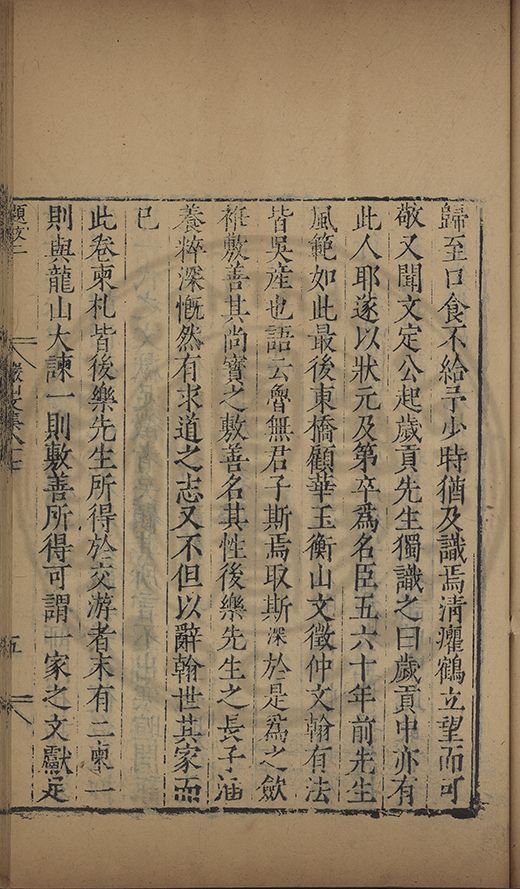 歸至口食不給予少時猶及識焉清癯鶴立望而可
敬又聞文定公起歲貢先生獨識之曰歲貢中亦有
此人耶遂以狀元及第卒爲名臣五六十年前先生
風範如此最後東橋顧華玉衡山文徵仲文翰有法
皆吳產也語云魯無君子斯焉取斯深於是爲之歛
袵敷善其尚寳之敷善名其性後樂先生之長子涵
養粹深慨然有求道之志又不但以辭翰世其家而
已
此卷柬札皆後樂先生所得於交游者末有二柬一
則與龍山大諫一則敷善所得可謂一家之文獻足
題文二
五